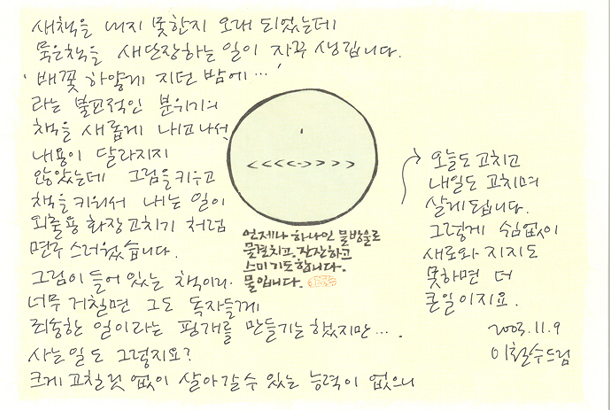 새책을 내지 못한지 오래 되었는데
묵은책을 새단장하는 일이 자꾸 생깁니다.
'배꽃 하얗게 지던 밤에…'
라는 불교적인 분위기의
책을 새롭게 내고나서,
내용이 달라지지
않았는데 그림을키우고
책을키워서 내는 일이
외출용 화장고치기 처럼
면구스러웠습니다.
그림이 들어 있는 책이라.
너무 거칠면 그도 독자들께
죄송한 일이라는 핑개를 만들기는 했지만….
사는일도 그렇지요?
크게 고칠것 없이 살아갈수 있는 능력이 없으니
<<<<->>>>
언제나 하나인 물방울로
물결치고, 잔잔하고
스미기도합니다.
물입니다.
오늘도 고치고
내일도 고치며
살게 됩니다.
그렇게 쉼없이
새로와 지지도
못하면 더
큰일이지요.
2003.11.9
이철수드림